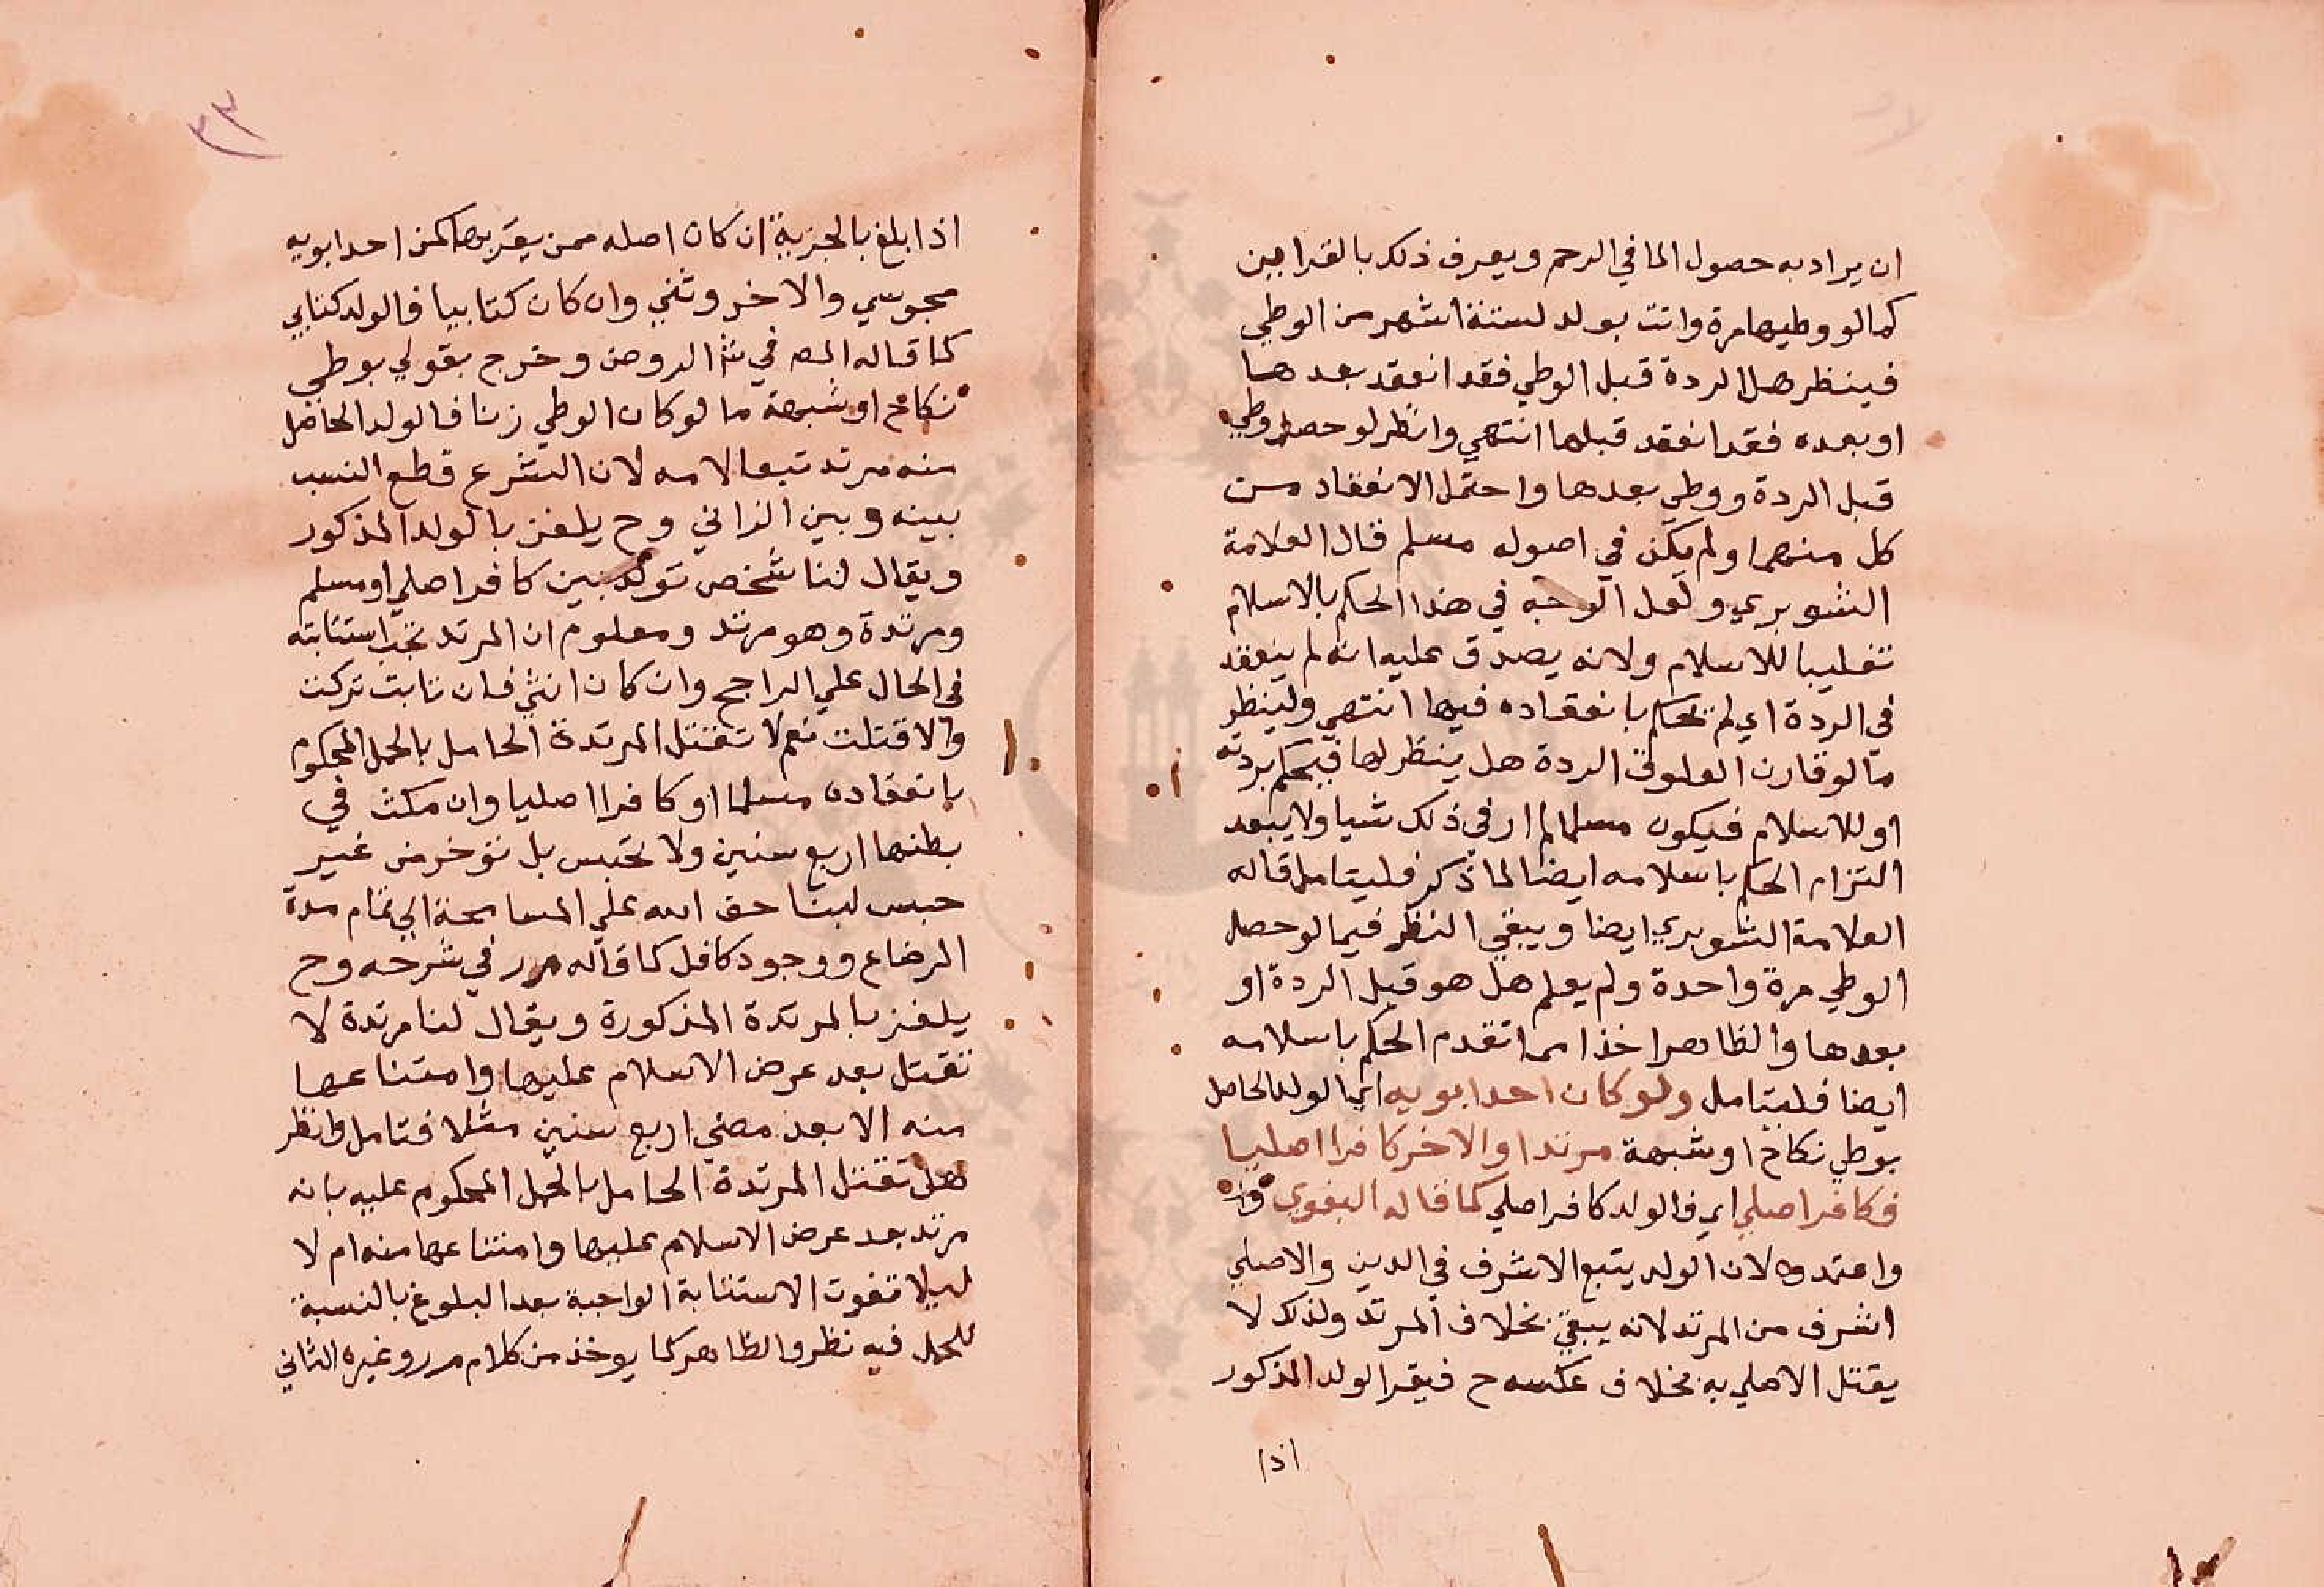 ان يراد به حصول الما في الرحم ويعرف ذلك بالقراين
كما لو وطيها مرة واتت بولد لستة اشهر من الوطي
فينظر هل الردة قبل الوطي فقد انعقد بعدها
او بعده فقد انعقد قبلها انتهي وانظر لو حصل وطي
قبل الردة ووطي بعدها واحتمل الانعقاد من
كل منهما ولم يكن في اصوله مسلم قال العلامة
الشوبري ولعل الوجه في هذا الحكم بالاسلام
تغليبا للاسلام ولانه يصدق عليه انه لم ينعقد
في الردة اي لم نحكم بانعقاده فيها انتهي ولينظر
ما لو قارن العلوق الردة هل ينظر لها فيحكم بردته
او للاسلام فيكون مسلما لم ار في ذلك شيا ولا يبعد
التزام الحكم باسلامه ايضا لما ذكر فليتامل قاله
العلامة الشوبري ايضا ويبقي النظر فيما لو حصل
الوطي مرة واحدة ولم يعلم هل هو قبل الردة او
بعدها والظاهر اخذا مما تقدم الحكم باسلامه
ايضا فليتامل ولو كان احد ابويه اي الولد الحاصل
بوطي نكاح او شبهة مرتدا والاخر كافرا اصليا
فكافر اصلي اي فالولد كافر اصلي كما قاله البغوي
واعتمدوه لان الولد يتبع الاشرف في الدين والاصلي
اشرف من المرتد لانه يبقي بخلاف المرتد ولذلك لا
يقتل الاصلي به بخلاف عكسه ح فيقر الولد المذكور
اذا
٣٣
اذا بلغ بالجزية ان كان اصله ممن يقر بها كمن احد ابويه
مجوسي والاخر وثني وان كان كتابيا فالولد كتابي
كما قاله المص في شرح الروض وخرج بقولي بوطي
نكاح او شبهة ما لو كان الوطي زنا فالولد الحاصل
منه مرتد تبعا لامه لان الشرع قطع النسب
بينه وبين الزاني وح يلغز بالولد المذكور
ويقال لنا شخص تولد بين كافر اصلي او مسلم
ومرتدة وهو مرتد ومعلوم ان المرتد تجب استتابته
في الحال علي الراجح وان كان انثي فان تابت تركت
والا قتلت نعم لا تقتل المرتدة الحامل بالحمل المحكوم
بانعقاده مسلما او كافرا اصليا وان مكث في
بطنها اربع سنين ولا تحبس بل توخر من غير
حبس لبنا حق الله علي المسامحة الي تمام مدة
الرضاع ووجود كافل كما قاله م ر في شرحه وح
يلغز بالمرتدة المذكورة ويقال لنا مرتدة لا
تقتل بعد عرض الاسلام عليها وامتناعها
منه الا بعد مضي اربع سنين مثلا فتامل وانظر
هل تقتل المرتدة الحامل بالحمل المحكوم عليه بانه
مرتد بعد عرض الاسلام عليها وامتناعها منه ام لا
ليلا تفوت الاستتابة الواجبة بعد البلوغ بالنسبة
للحمل فيه نظر والظاهر كما يوخذ من كلام م ر وغيره الثاني